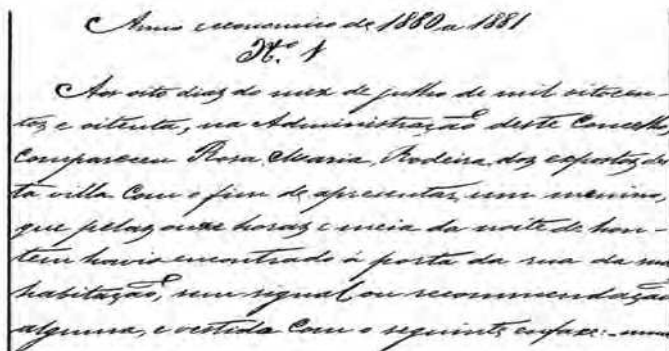 Anno economico de 1880 a 1881
N.º 1
Aos oito dias do mez de julho de mil oitocen-
tos e oitenta, na Administração deste Concelho
compareceu Rosa Maria, Rodeira dos expostos des
ta villa com o fim de apresentar um menino,
que pelas onze horas e meia da noite de hon-
tem havia encontrado á porta da rua da sua
habitação, sem signal ou recommendação
alguma, e vestido com o seguinte enfaxe: - uma